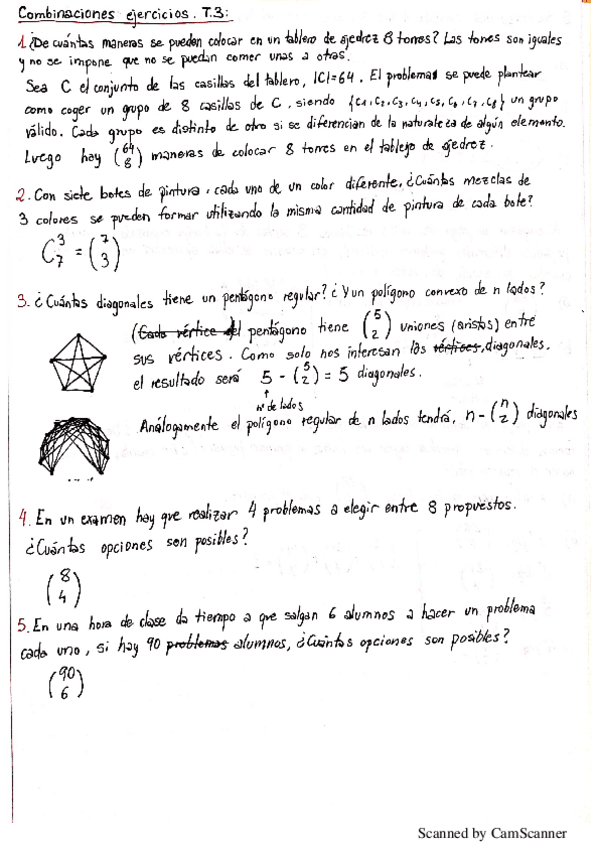 Combinaciones ejercicios. T.3:
1. ¿De cuántas maneras se pueden colocar en un tablero de ajedrez 8 torres? Las torres son iguales
y no se impone que no se puedan comer unas a otras.
Sea C el conjunto de las casillas del tablero, |C|=64. El problema se puede plantear
como coger un grupo de 8 casillas de C, siendo {C1, C2, C3, C4, C5, C6, C7, C8} un grupo
válido. Cada grupo es distinto de otro si se diferencian de la naturaleza de algún elemento.
Luego hay (64 8) maneras de colocar 8 torres en el tablejo de ajedrez.
2. Con siete botes de pintura, cada uno de un color diferente, ¿Cuántas mezclas de
3 colores se pueden formar utilizando la misma cantidad de pintura de cada bote?
C₇³ = (7 3)
3. ¿Cuántas diagonales tiene un pentágono regular? ¿Y un polígono convexo de n lados?
(Cada vértice del pentágono tiene (5 2) uniones (aristas) entre
sus vértices. Como solo nos interesan las vértices, diagonales,
el resultado será 5 - (5 2) = 5 diagonales.
↑
nº de lados
Análogamente el polígono regular de n lados tendrá, n - (n 2) diagonales
4. En un examen hay que realizar 4 problemas a elegir entre 8 propuestos.
¿Cuántas opciones son posibles?
(8 4)
5. En una hora de clase da tiempo a que salgan 6 alumnos a hacer un problema
cada uno, si hay 90 problemas alumnos, ¿Cuántas opciones son posibles?
(90 6)
Scanned by CamScanner